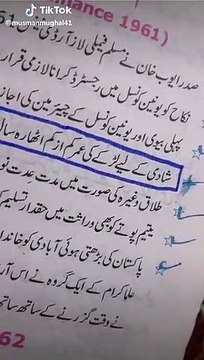 TikTok
@musmanmughal41
nance 1961)
صدر ایوب خان نے مسلم فیملی لاز آرڈی
نکاح کو یونین کونسل میں رجسٹرڈ کرانا لازمی قرار
پہلی بیوی اور یونین کونسل کے چیئرمین کی اجاز
شادی کے لیے لڑکے کی عمر کم از کم اٹھارہ سال
طلاق وغیرہ کی صورت میں مدت عدت نو
یتیم پوتے کو بھی وراثت میں حقدار تسلیم
پاکستان کی بڑھتی ہوئی آبادی کو خاندا
علما کرام کے ایک گروہ نے اس آر
نے وقت گزرنے کے ساتھ ساتھ
62